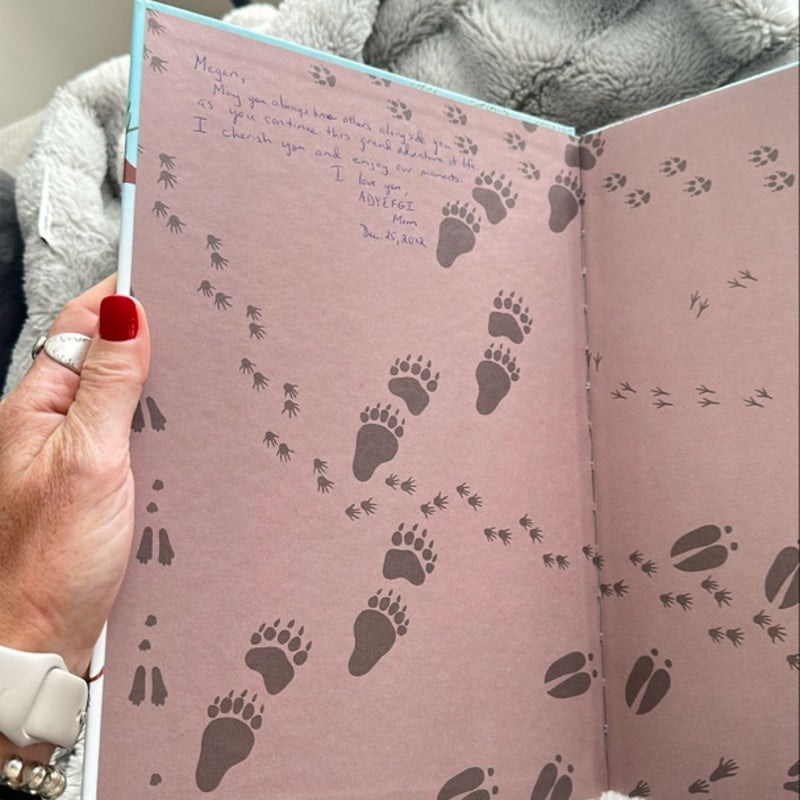 Megan,
May you always have others alongside you
as you continue this grand adventure of life.
I cherish you and enjoy our moments.
I love you,
ADYEFGI
Mom
Dec. 25, 2012